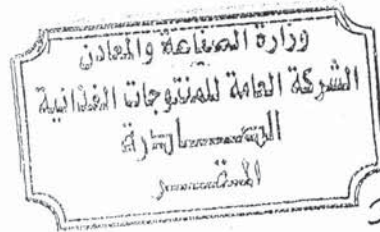 وزارة الصناعة والمعادن
الشركة العامة للمنتوجات الغذائية
الصـــادرة
المقـــر